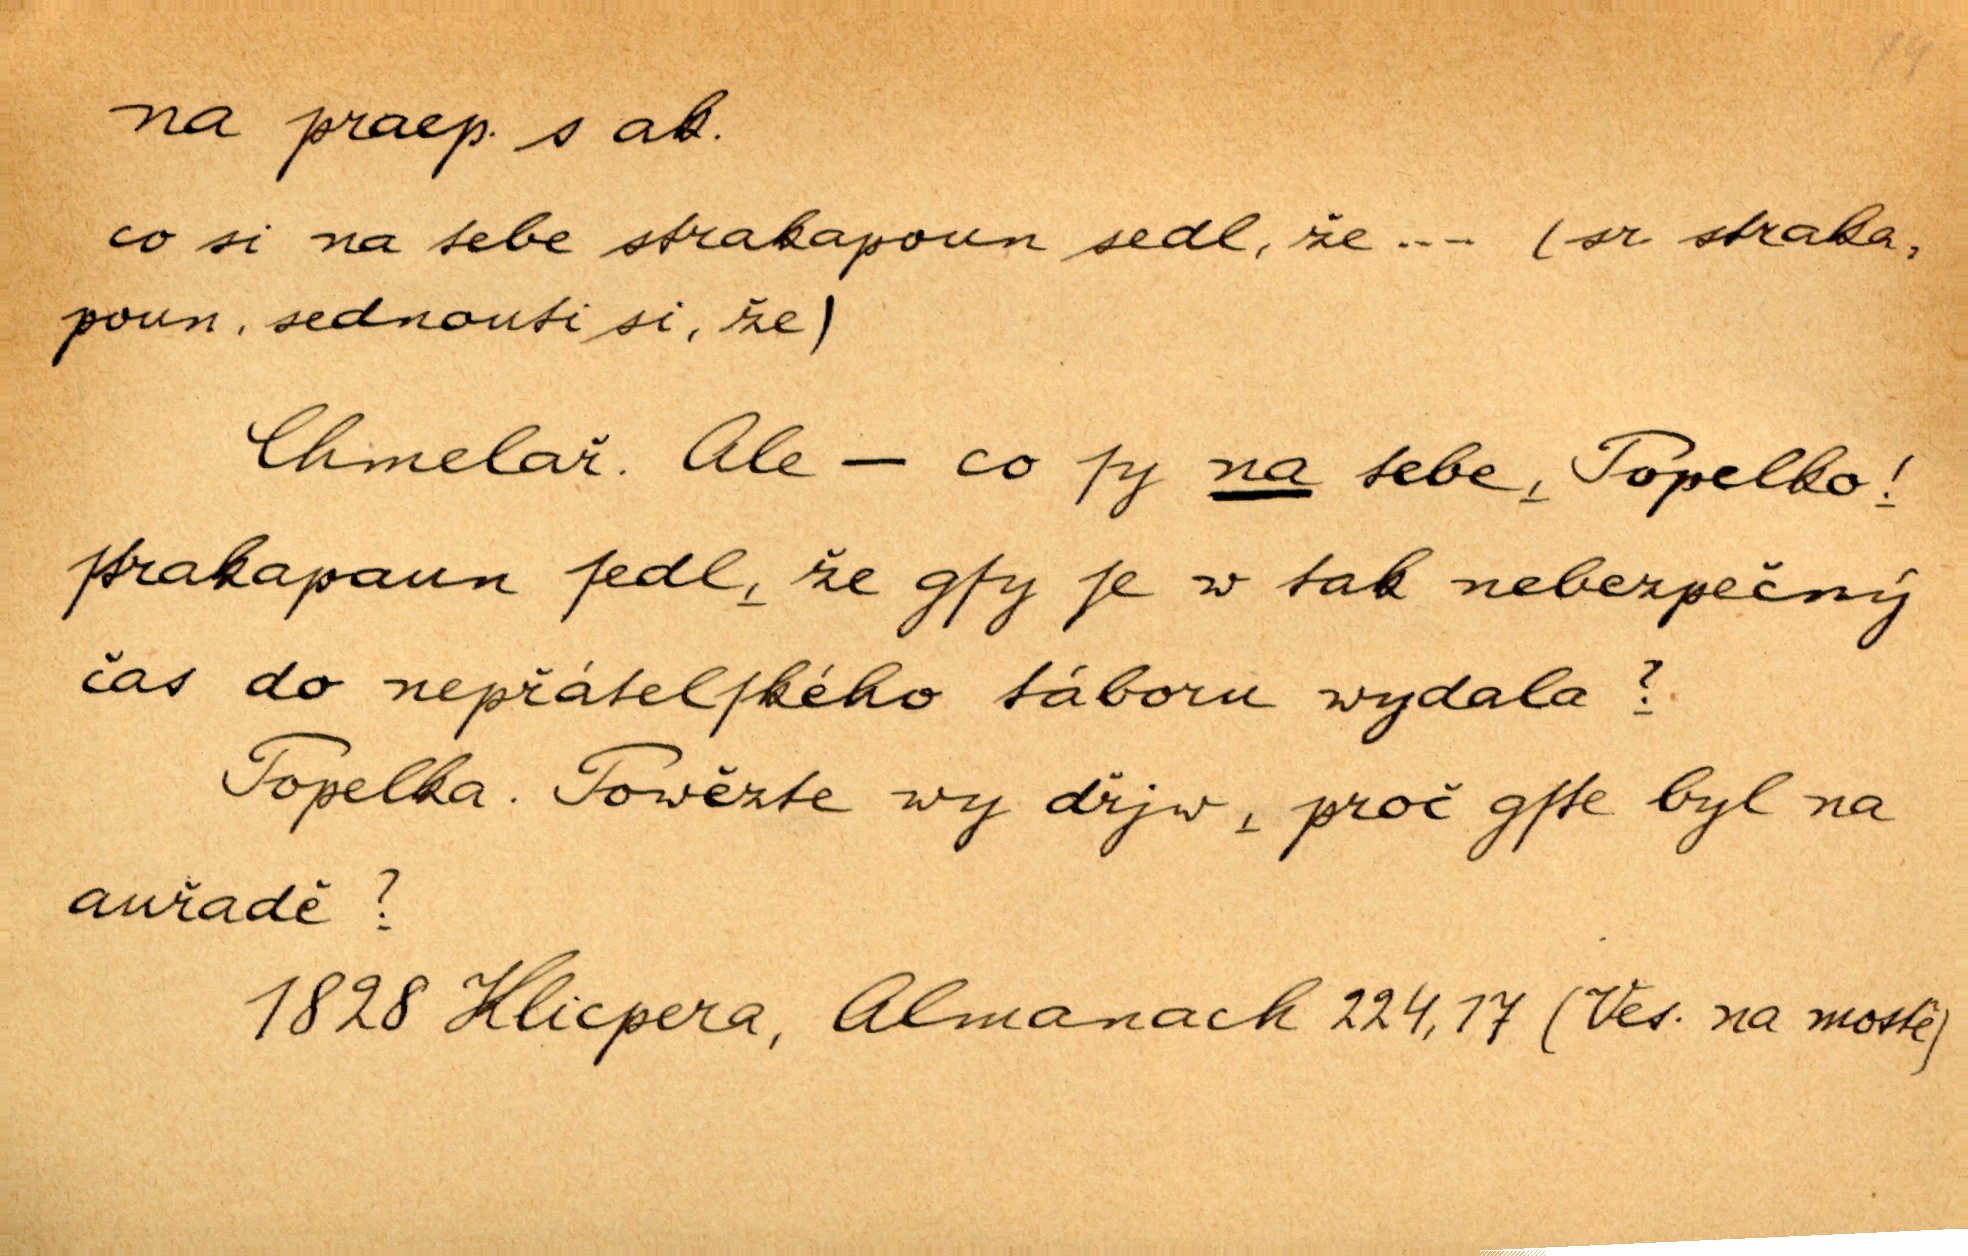 14
na praep. s ak.
co si na tebe strakapoun sedl, že --- (sr. straka,
poun, sednouti si, že)
Chmelař. Ale — co ſy na tebe, Topelko!
ſtrakapaun ſedl, že gſy ſe w tak nebezpečný
čas do nepřátelſkého táboru wydala?
Topelka. Powězte wy dřjw, proč gſte byl na
auřadě?
1828 Klicpera, Almanach 224,17 (Ves. na mostě)